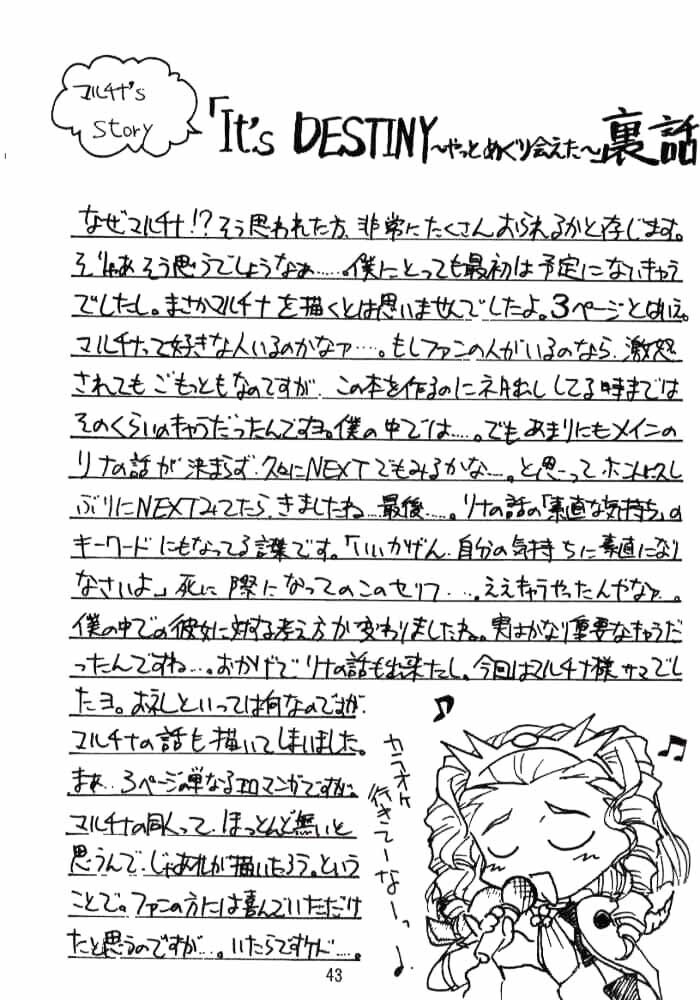 マルチナ's
Story
「It's DESTINY〜やっとめぐり会えた〜」裏話
なぜマルチナ!?そう思われた方、非常にたくさんおられるかと存じます。
そりゃあそう思うでしょうなぁ……。僕にとっても最初は予定にないキャラ
でしたし。まさかマルチナを描くとは思いませんでしたよ。3ページとはいえ。
マルチナって好きな人いるのかなァ…。もしファンの人がいるのなら、激怒
されてもごもっともなのですが、この本を作るのにネタ出ししてる時までは
そのくらいのキャラだったんですヨ。僕の中では……。でもあまりにもメインの
リナの話が決まらず、久々にNEXTでもみるかな……。と思ってホントにひさし
ぶりにNEXTみてたら、きましたね…最後……。リナの話の「素直な気持ち」の
キーワードにもなってる言葉です。「いいかげん、自分の気持ちに素直になり
なさいよ」死に際になってのこのセリフ……。ええキャラやったんやなァ。
僕の中での彼女に対する考え方が変わりましたね。実はかなり重要なキャラだ
ったんですね…。おかげでリナの話も出来たし。今回はマルチナ様サマでし
たヨ。お礼といっては何なのですが、
マルチナの話も描いてしまいました。
まぁ…3ページの単なるエロマンガですが。
マルチナの同人って、ほっとんど無いと
思うんで、じゃあオレが描いたろう。という
ことで。ファンの方には喜んでいただけ
たと思うのですが…。いたらですケド……。
カラオケ
行きてーなーっ
♪
♪
♫
43